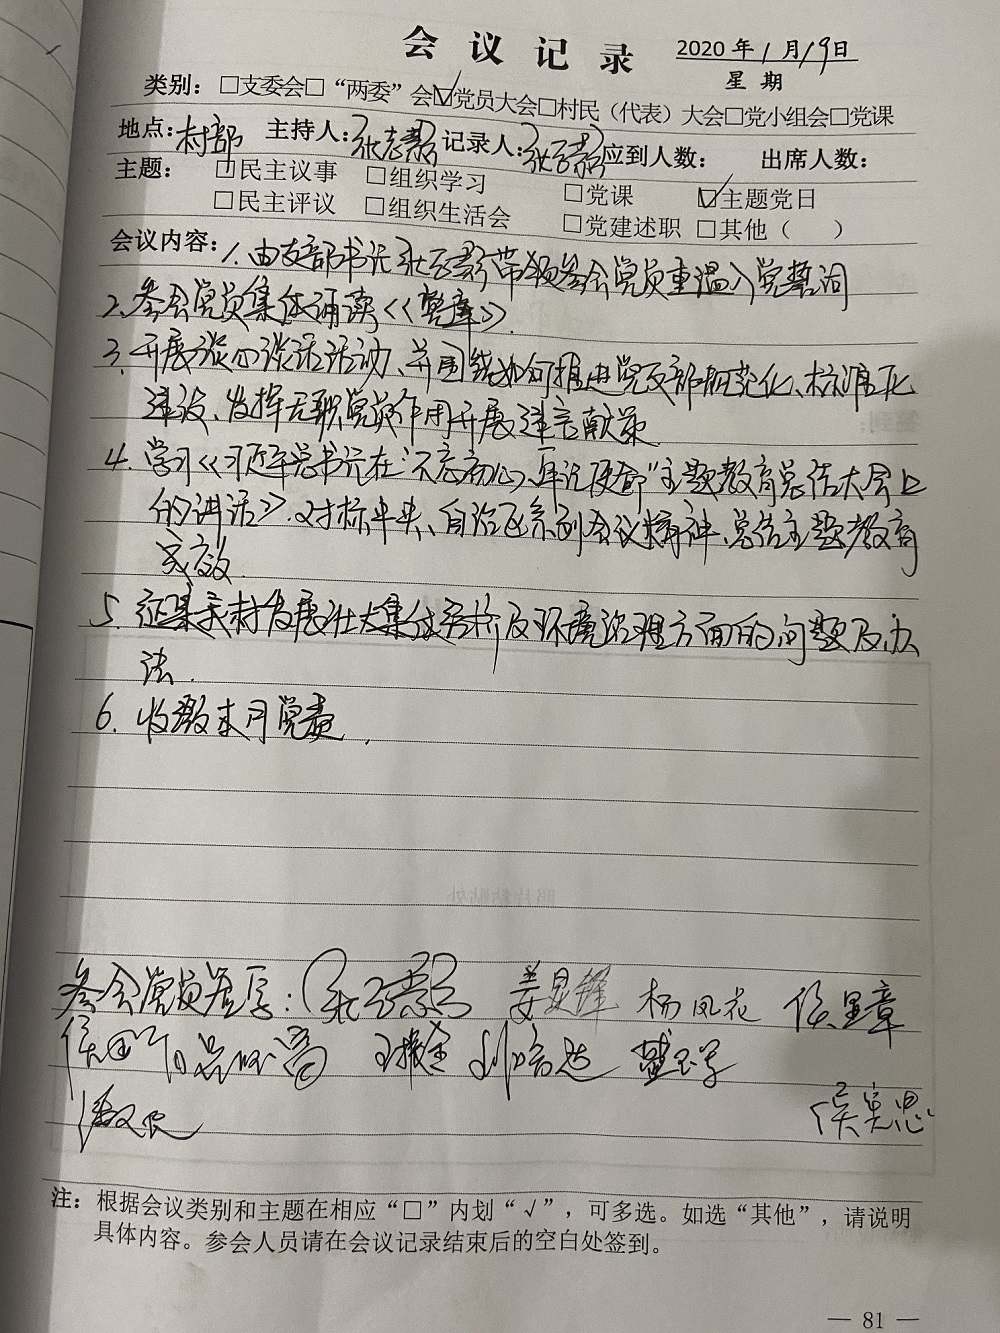 会 议 记 录 2020 年 1 月 19 日
星 期
类别：□支委会□“两委”会☑党员大会□村民（代表）大会□党小组会□党课
地点：村部 主持人：张 记录人：张 应到人数： 出席人数：
主题： □民主议事 □组织学习 □党课 ☑主题党日
□民主评议 □组织生活会 □党建述职 □其他（ ）
会议内容：1. 由支部书记张 带领参会党员重温入党誓词
2. 参会党员集体诵读《党章》.
3. 开展谈心谈话活动、并围绕如何推进党支部规范化、标准化
建设、发挥无职党员作用开展建言献策.
4. 学习《习近平总书记在“不忘初心、牢记使命”主题教育总结大会上
的讲话》. 对标中央、自治区系列会议精神、总结主题教育
成效.
5. 征集我村发展壮大集体经济及环境治理方面的问题及办
法.
6. 收缴本月党费.
参会党员签字：张 姜 杨凤花 侯
侯
侯
注：根据会议类别和主题在相应“□”内划“√”，可多选。如选“其他”，请说明
具体内容。参会人员请在会议记录结束后的空白处签到。
— 81 —